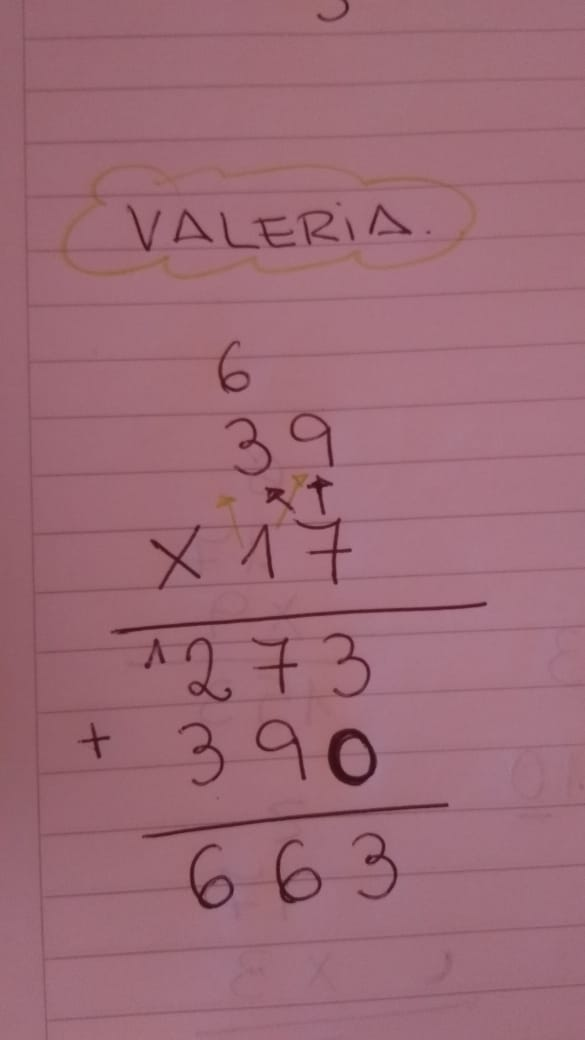 VALERIA.
6
39
X 17
1273
+ 390
663